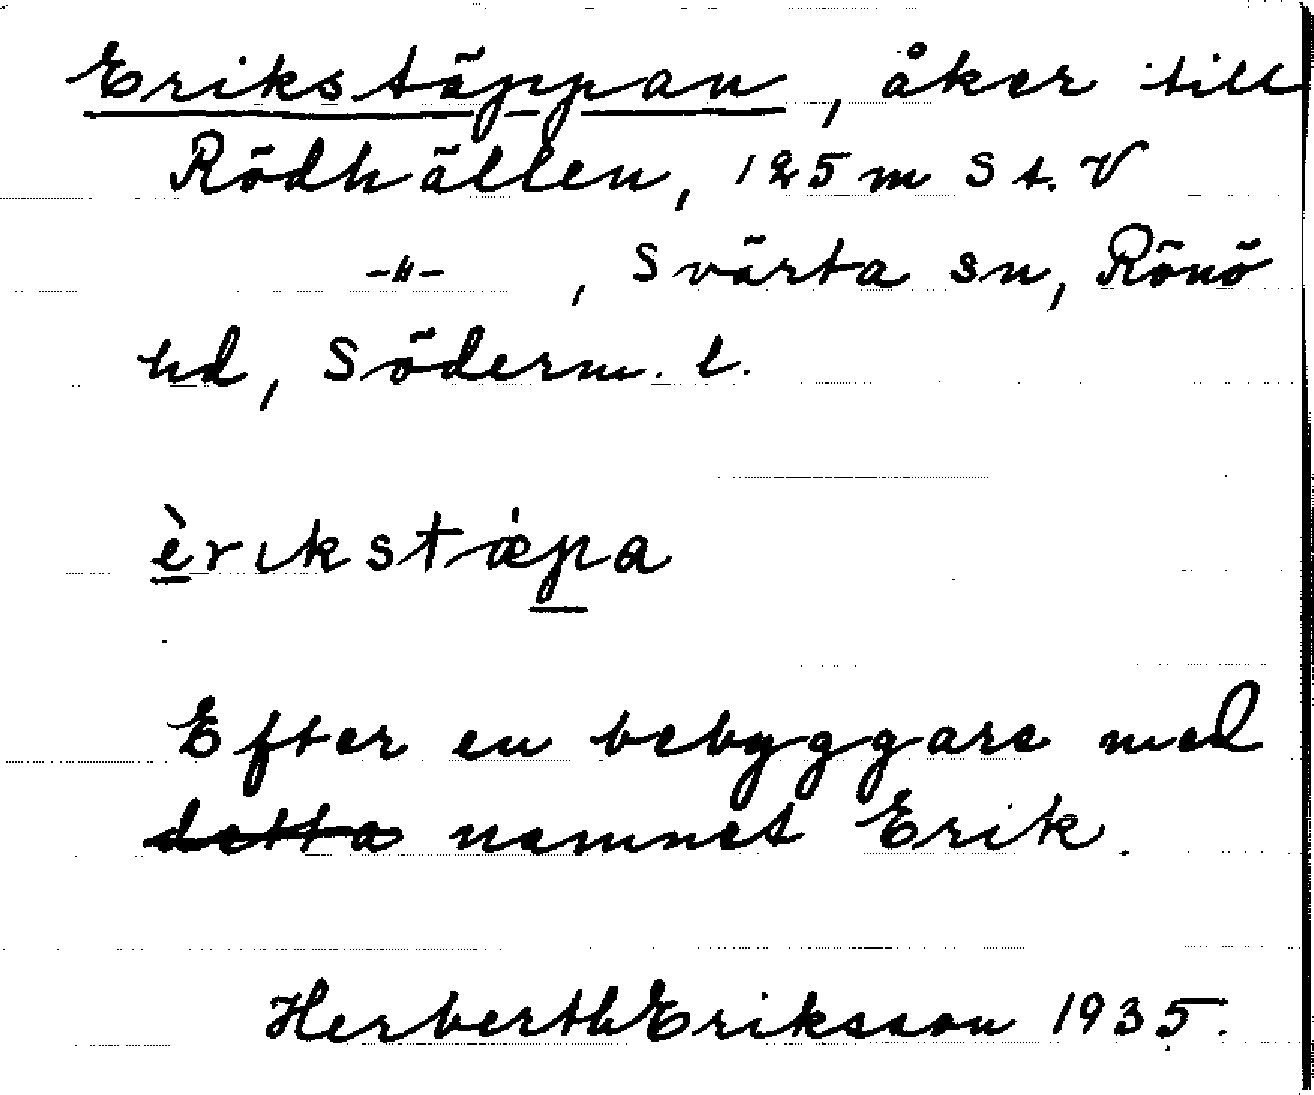 Erikstäppan, åker till
Rödhällen, 125 m S t. V
-"-, Svärta sn, Rönö
hd, Söderm. l.
èrikstæ̍pa
Efter en bebyggare med
detta namnet Erik.
Herberth Eriksson 1935.